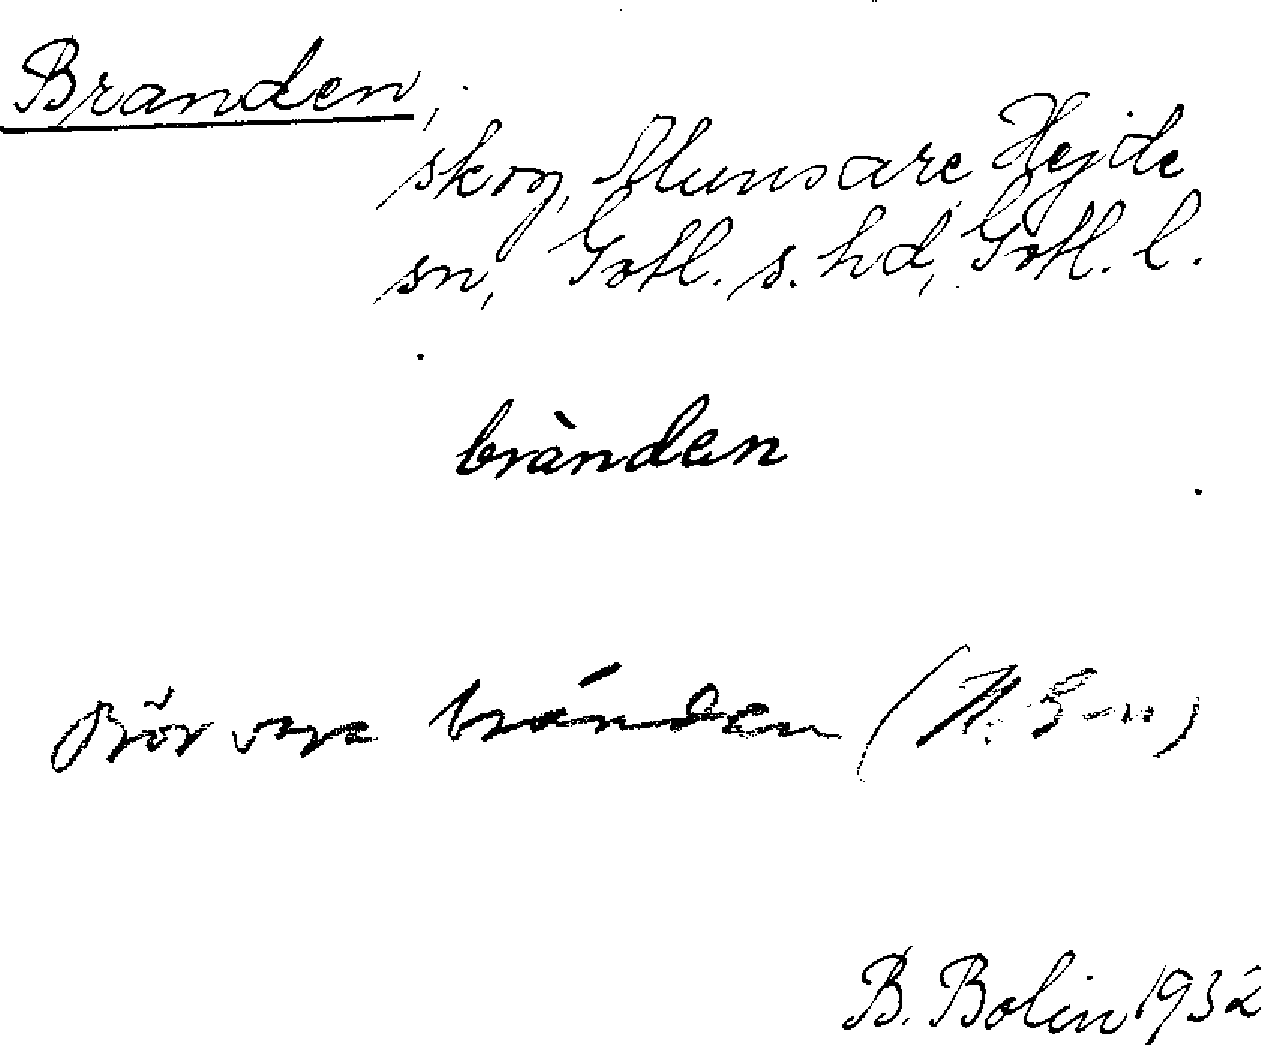 Branden,
skog, Munsare Hejde
sn, Gotl. s. hd, Gotl. l.
brànden
Bör vara bránden (H. G-n)
B. Bolin 1932